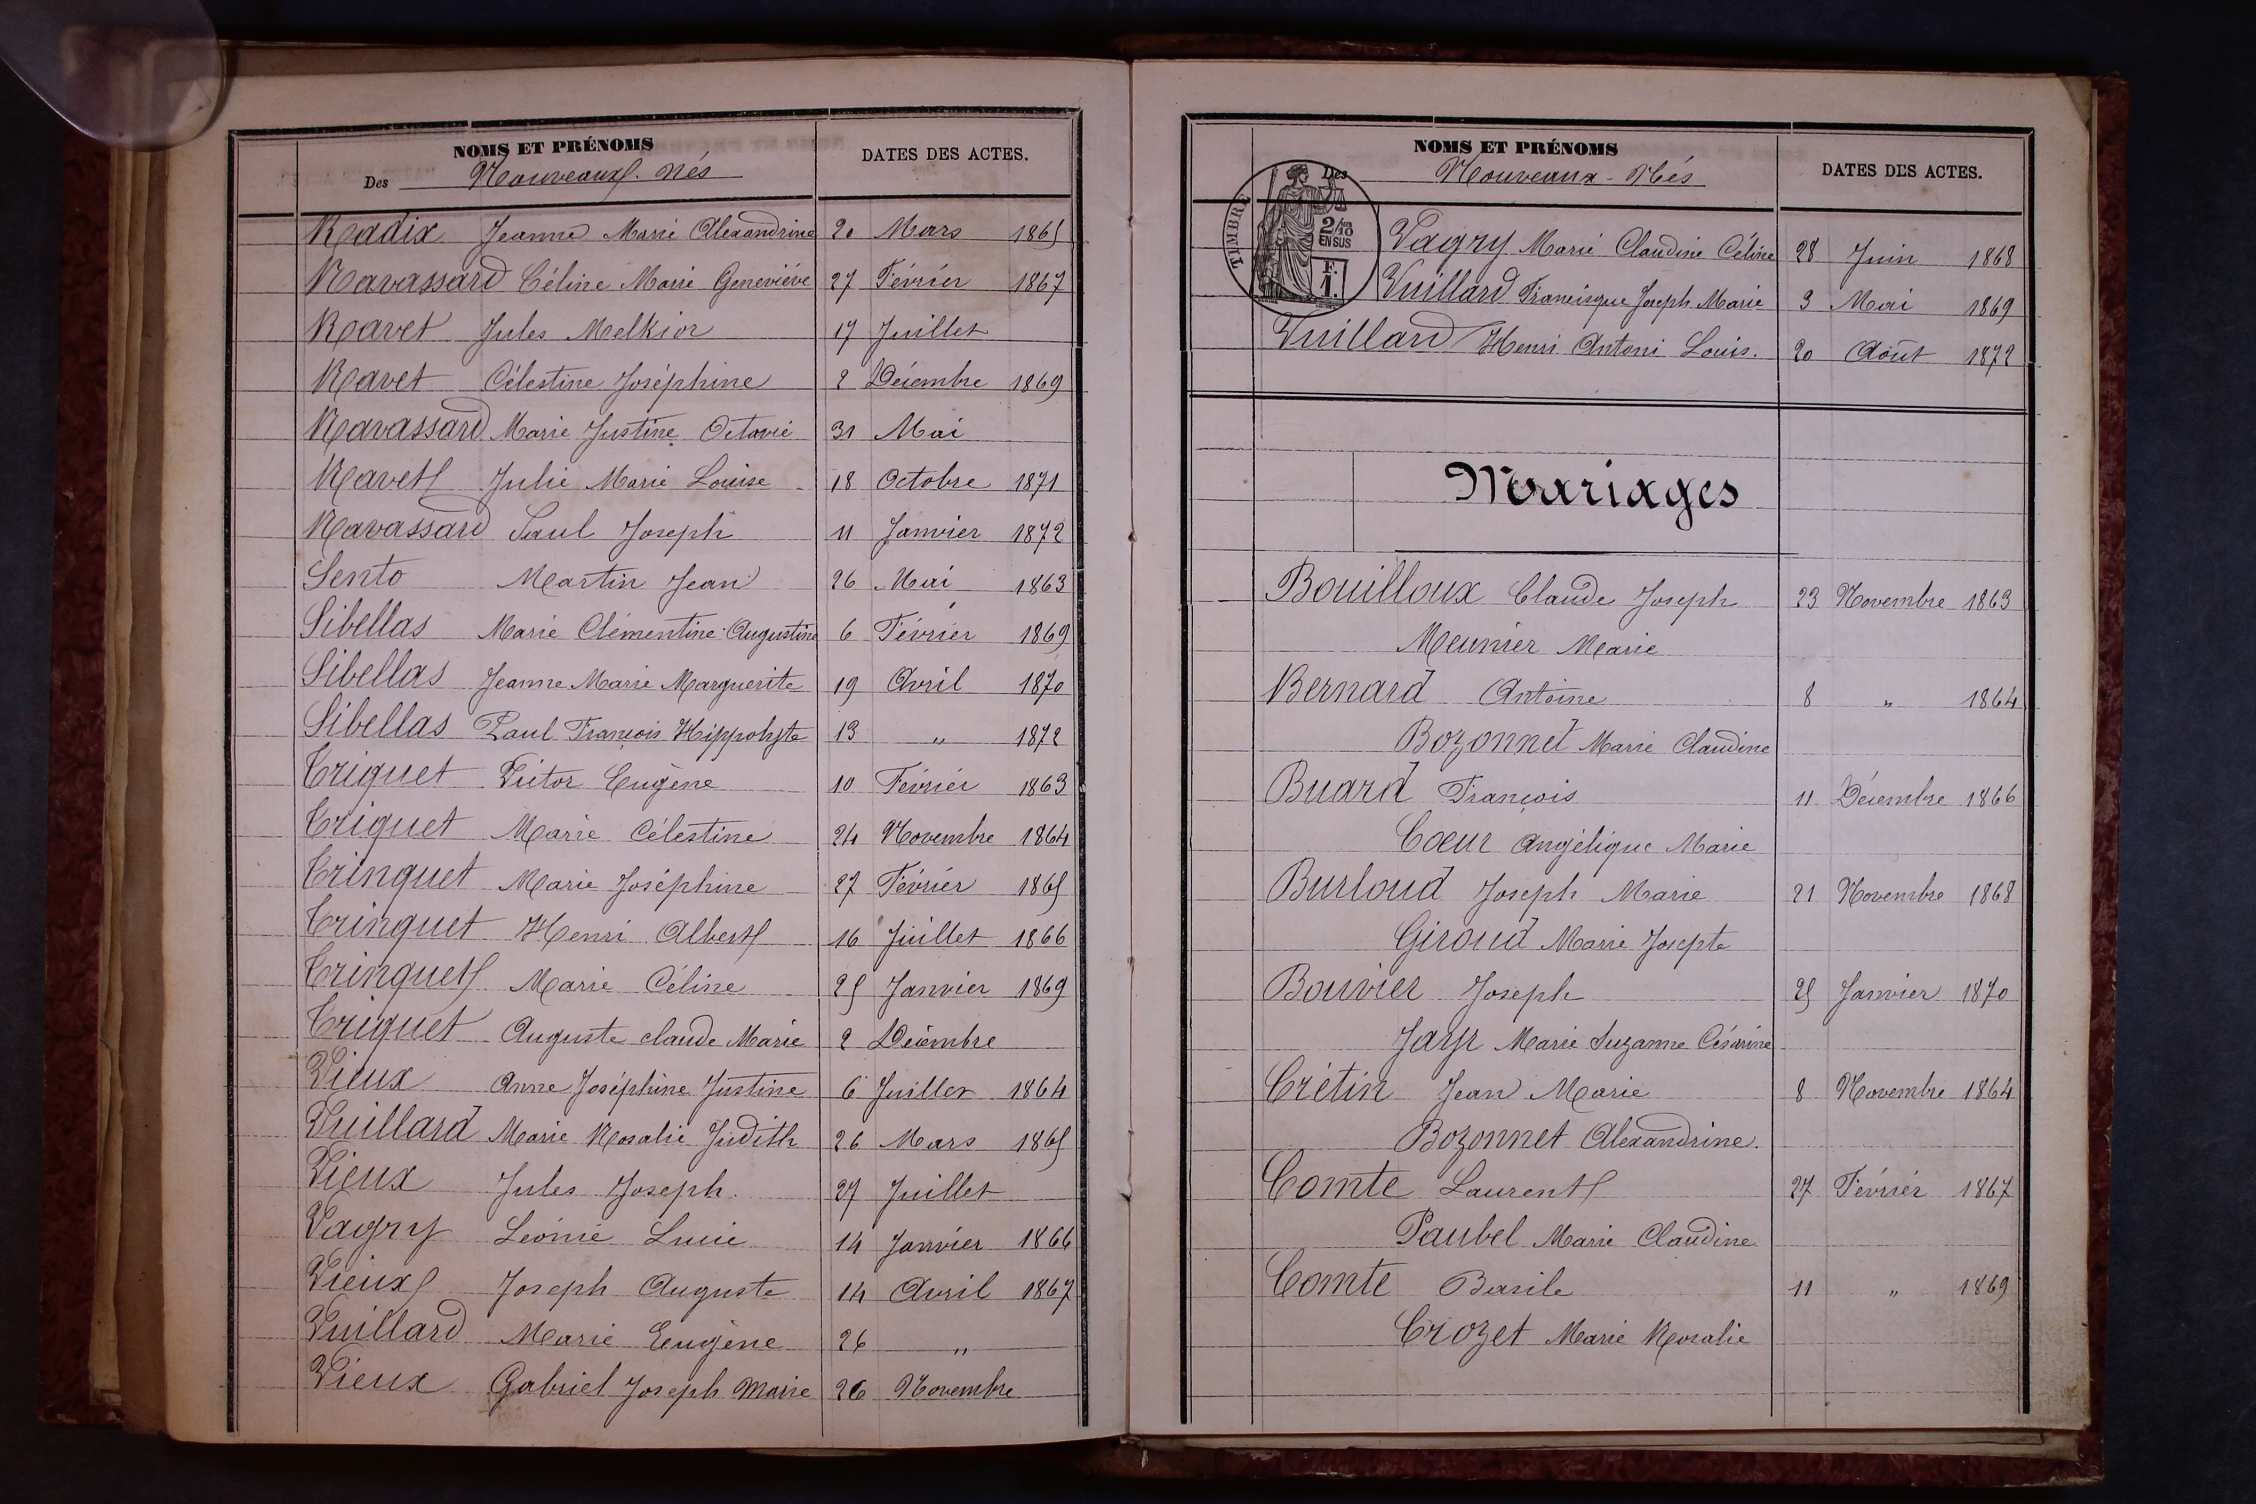 NOMS ET PRÉNOMS
DATES DES ACTES.
Des Nouveaux. nés
Radix Jeanne Marie Alexandrine 20 Mars 1865
Ravassard Céline Marie Geneviéve 27 Février 1867
Ravet Jules Melkior 17 Juillet
Ravet Célestine Joséphine 2 Décembre 1869
Ravassard Marie Justine Octavie 31 Mai
Ravet Julie Marie Louise 18 Octobre 1871
Ravassard Paul Joseph 11 Janvier 1872
Sento Martin Jean 26 Mai 1863
Sibellas Marie Clémentine Augustine 6 Février 1869
Sibellas Jeanne Marie Marguerite 19 Avril 1870
Sibellas Paul François Hippolyte 13 " 1872
Triquet Victor Eugène 10 Février 1863
Triquet Marie Célestine 24 Novembre 1864
Trinquet Marie Joséphine 27 Février 1865
Trinquet Henri Albert 16 Juillet 1866
Trinquet Marie Céline 25 Janvier 1869
Triquet Auguste claude Marie 2 Décembre
Vieux Anne Joséphine Justine 6 Juillet 1864
Vuillard Marie Rosalie Judith 26 Mars 1865
Vieux Jules Joseph. 27 Juillet
Vagry Léonie Lucie 14 Janvier 1866
Vieux Joseph Auguste 14 Avril 1867
Vuillard Marie Eugène 26 "
Vieux Gabriel Joseph Marie 26 Novembre
NOMS ET PRÉNOMS
DATES DES ACTES.
Des Nouveaux-Nés
TIMBRE
2/10
EN SUS
F.
1.
Vagry Marie Claudine Céline 28 Juin 1868
Vuillard Francisque Joseph Marie 3 Mai 1869
Vuillard Henri Antoni Louis. 20 Août 1872
Mariages
Bouilloux Claude Joseph 23 Novembre 1863
Meunier Marie
Bernard Antoine 8 " 1864
Bozonnet Marie Claudine
Buard François 11 Décembre 1866
Coeur Angélique Marie
Burloud Joseph Marie 21 Novembre 1868
Giroud Marie Josepte
Bouvier Joseph 25 Janvier 1870
Jayr Marie Suzanne Césarine
Crétin Jean Marie 8 Novembre 1864
Bozonnet Alexandrine.
Comte Laurent 27 Février 1867
Paubel Marie Claudine
Comte Basile 11 " 1869
Crozet Marie Rosalie